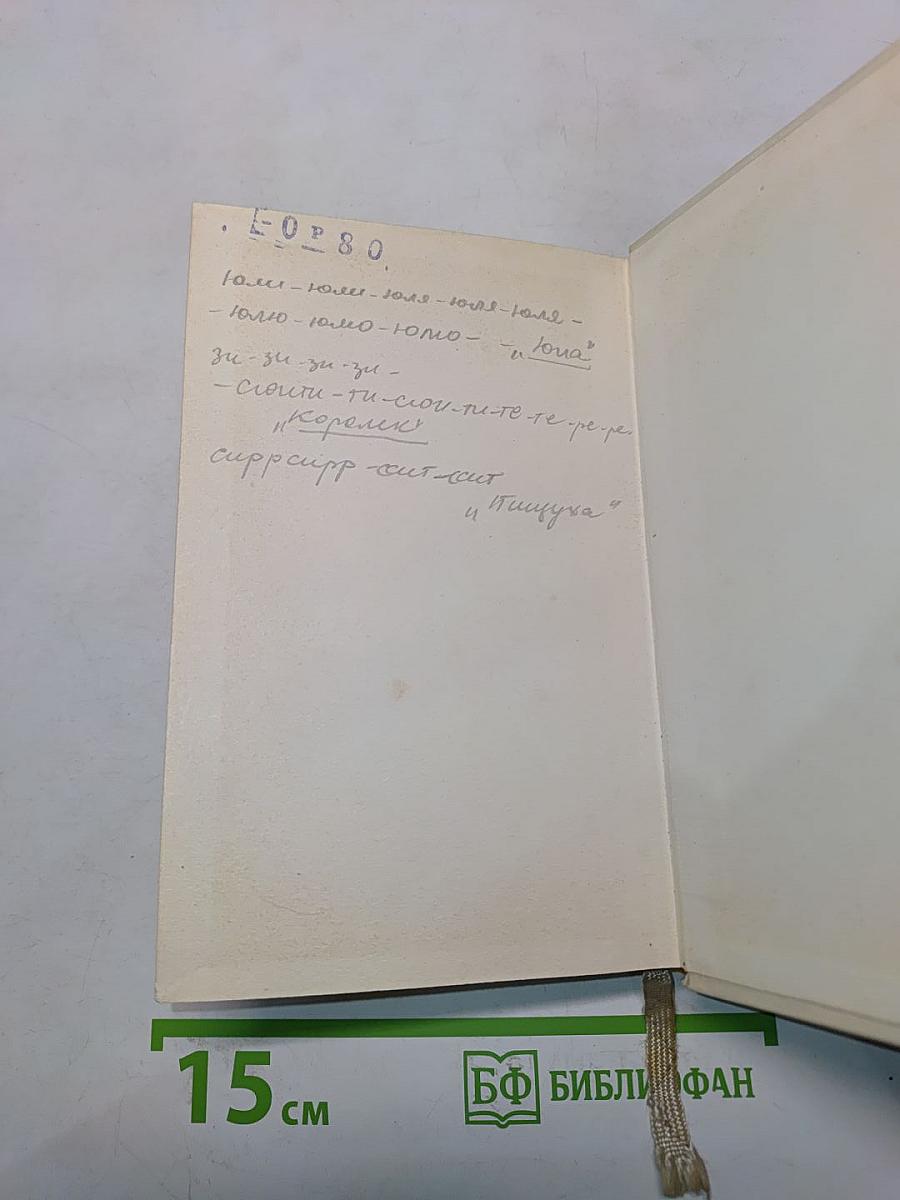 . Е-0 р 8 0.
юли - юли - юля - юля - юля -
- юлю - юлю - юлю - - „Юла"
зи - зи - зи - зи -
- сюити - ти - сюи - ти - те - те - ре - ре.
„Королек"
сиррсирр - сит - сит
„Пищуха"
15 см
БФ БИБЛИОФАН